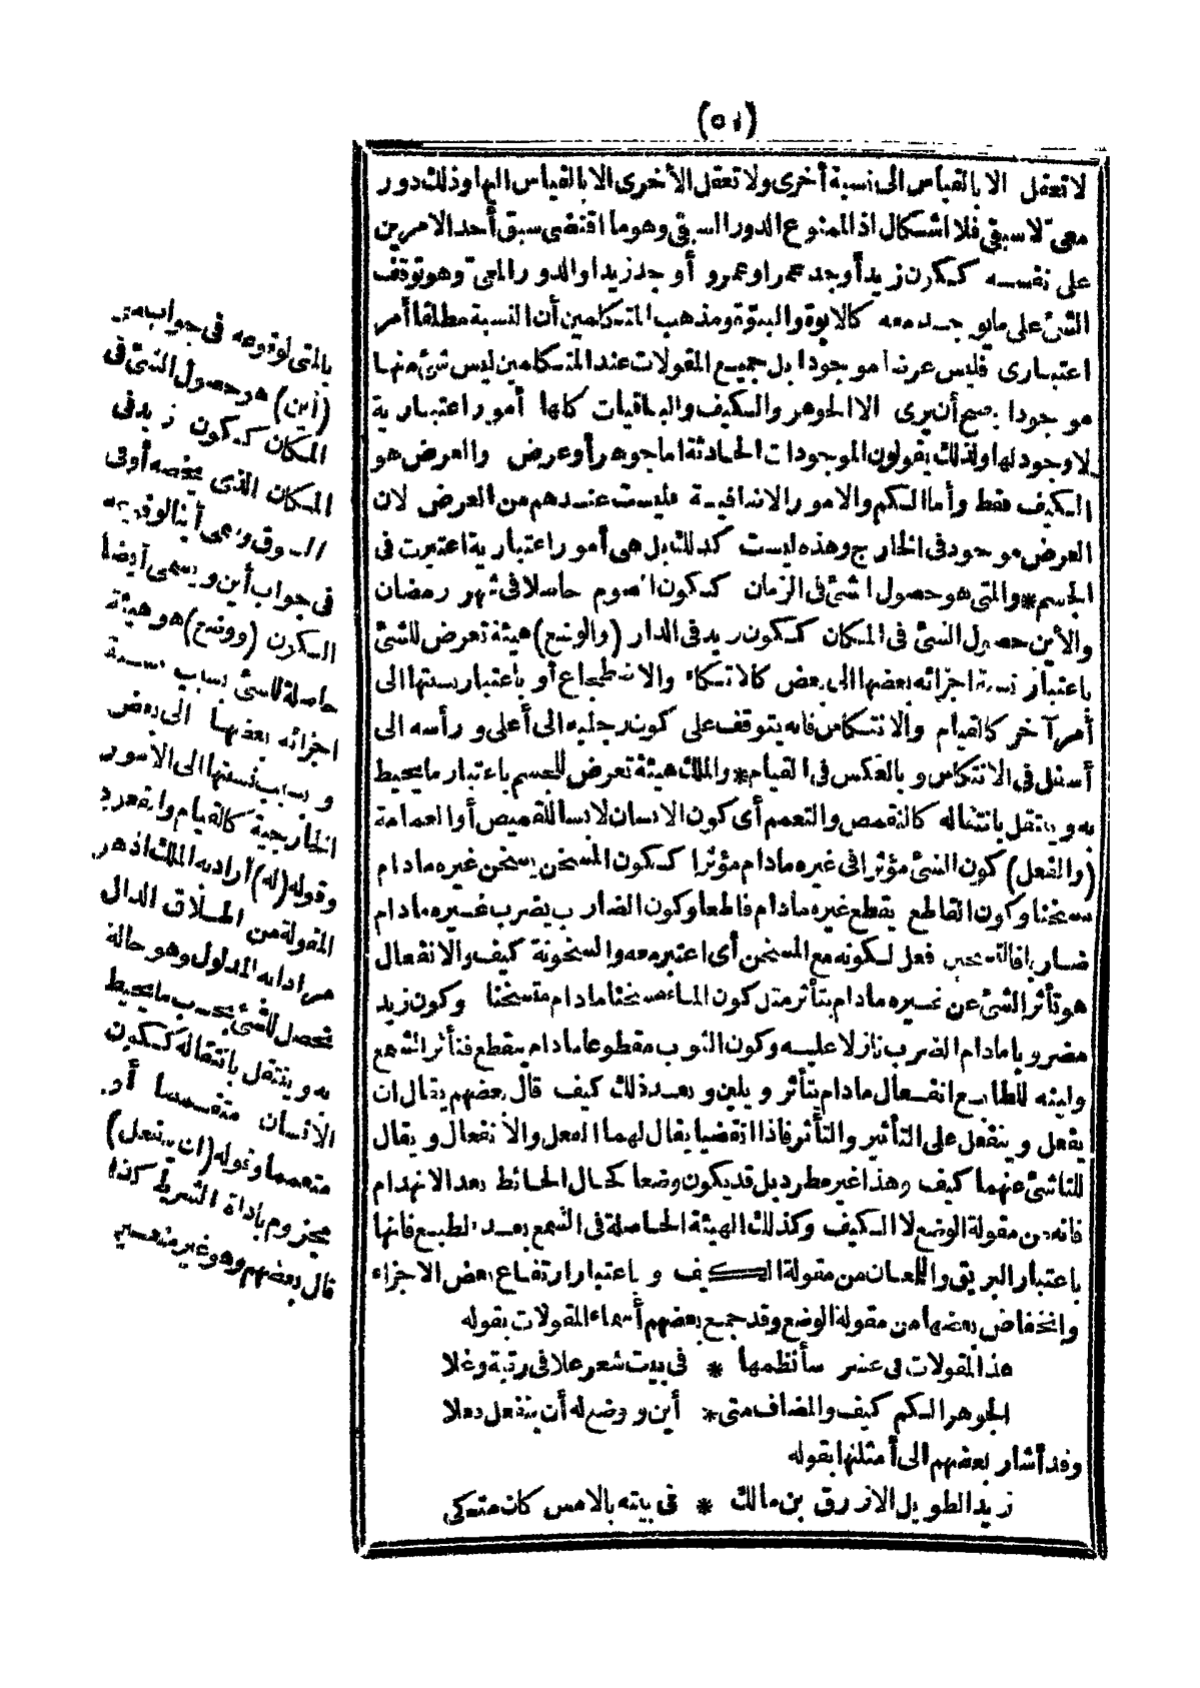 (٥١)
لا تعقل الا بالقياس الى نسبة أخرى ولا تعقل الأخرى الا بالقياس اليها وذلك دور
معى لا سبقى فلا اشكال اذ الممنوع الدور السبقى وهو ما اقتضى سبق أحد الامرين
على نفسه ككون زيد أوجد عمرا وعمرو أوجد زيدا والدور المعى وهو توقف
الشئ على ما يوجد معه كالابوة والبنوة ومذهب المتكلمين أن النسبة مطلقا أمر
اعتبارى فليس عرضا موجودا بل جميع المقولات عند المتكلمين ليس شئ منها
موجودا يصح أن يرى الا الجوهر والكيف والباقيات كلها أمور اعتبارية
لا وجود لها ولذلك يقولون الموجودات الحادثة اما جوهر أو عرض والعرض هو
الكيف فقط وأما الكم والامور الاضافية فليست عندهم من العرض لان
العرض موجود فى الخارج وهذه ليست كذلك بل هى أمور اعتبارية اعتبرت فى
الجسم * والمتى هو حصول الشئ فى الزمان ككون الصوم حاصلا فى شهر رمضان
والأين حصول الشئ فى المكان ككون زيد فى الدار (والوضع) هيئة تعرض للشئ
باعتبار نسبة اجزائه بعضها الى بعض كالاتكاء والاضطجاع أو باعتبار نسبتها الى
أمر آخر كالقيام والانتكاس فانه يتوقف على كون رجليه الى أعلى ورأسه الى
أسفل فى الانتكاس وبالعكس فى القيام * والملك هيئة تعرض للجسم باعتبار ما يحيط
به وينتقل بانتقاله كالتقمص والتعمم أى كون الانسان لابسا للقميص أو العمامة
(والفعل) كون الشئ مؤثرا فى غيره مادام مؤثرا ككون المسخن يسخن غيره مادام
مسخنا وكون القاطع يقطع غيره مادام قاطعا وكون الضارب يضرب غيره مادام
ضاربا فالتسخين فعل لكونه مع المسخن أى اعتبر معه والسخونة كيف والانفعال
هو تأثر الشئ عن غيره مادام يتأثر مثل كون الماء مسخنا مادام متسخنا وكون زيد
مضروبا مادام الضرب نازلا عليه وكون الثوب مقطوعا مادام يتقطع فتأثر الشمع
ولينه للطابع انفعال مادام يتأثر ويلين وبعد ذلك كيف قال بعضهم يقال ان
يفعل وينفعل على التأثير والتأثر فاذا انقضيا يقال لهما الفعل والانفعال ويقال
للناشئ عنهما كيف وهذا غير مطرد بل قد يكون وضعا كحال الحائط بعد الانهدام
فانه من مقولة الوضع لا الكيف وكذلك الهيئة الحاصلة فى الشمع بعد الطبع فانها
باعتبار البريق واللمعان من مقولة الكيف وباعتبار ارتفاع بعض الاجزاء
وانخفاض بعضها من مقولة الوضع وقد جمع بعضهم أسماء المقولات بقوله
هذا المقولات فى عشر سأنظمها * فى بيت شعر علا فى رتبة وغلا
الجوهر الكم كيف والمضاف متى * أين ووضع له أن ينفعل فعلا
وقد أشار بعضهم الى أمثلتها بقوله
زيد الطويل الازرق بن مالك * فى بيته بالامس كان متكى
بالمتى لوقوعه فى جوابه
(أين) هو حصول الشئ فى
المكان ككون زيد فى
المكان الذى يخصه أو فى
السوق وسمى أينا لوقوعه
فى جواب أين ويسمى أيضا
السكون (ووضع) هو هيئة
حاصلة للشئ بسبب نسبة
اجزائه بعضها الى بعض
وبسبب نسبتها الى الامور
الخارجية كالقيام والقعود
وقوله (له) أراد به الملك اذ هو
المقولة من اطلاق الدال
مرادا به المدلول وهو حالة
تحصل للشئ بسبب ما يحيط
به وينتقل بانتقاله ككون
الانسان متقمصا أو
متعمما وقوله (ان ينفعل)
مجزوم بأداة الشرط كذا
قال بعضهم وهو غير متعين